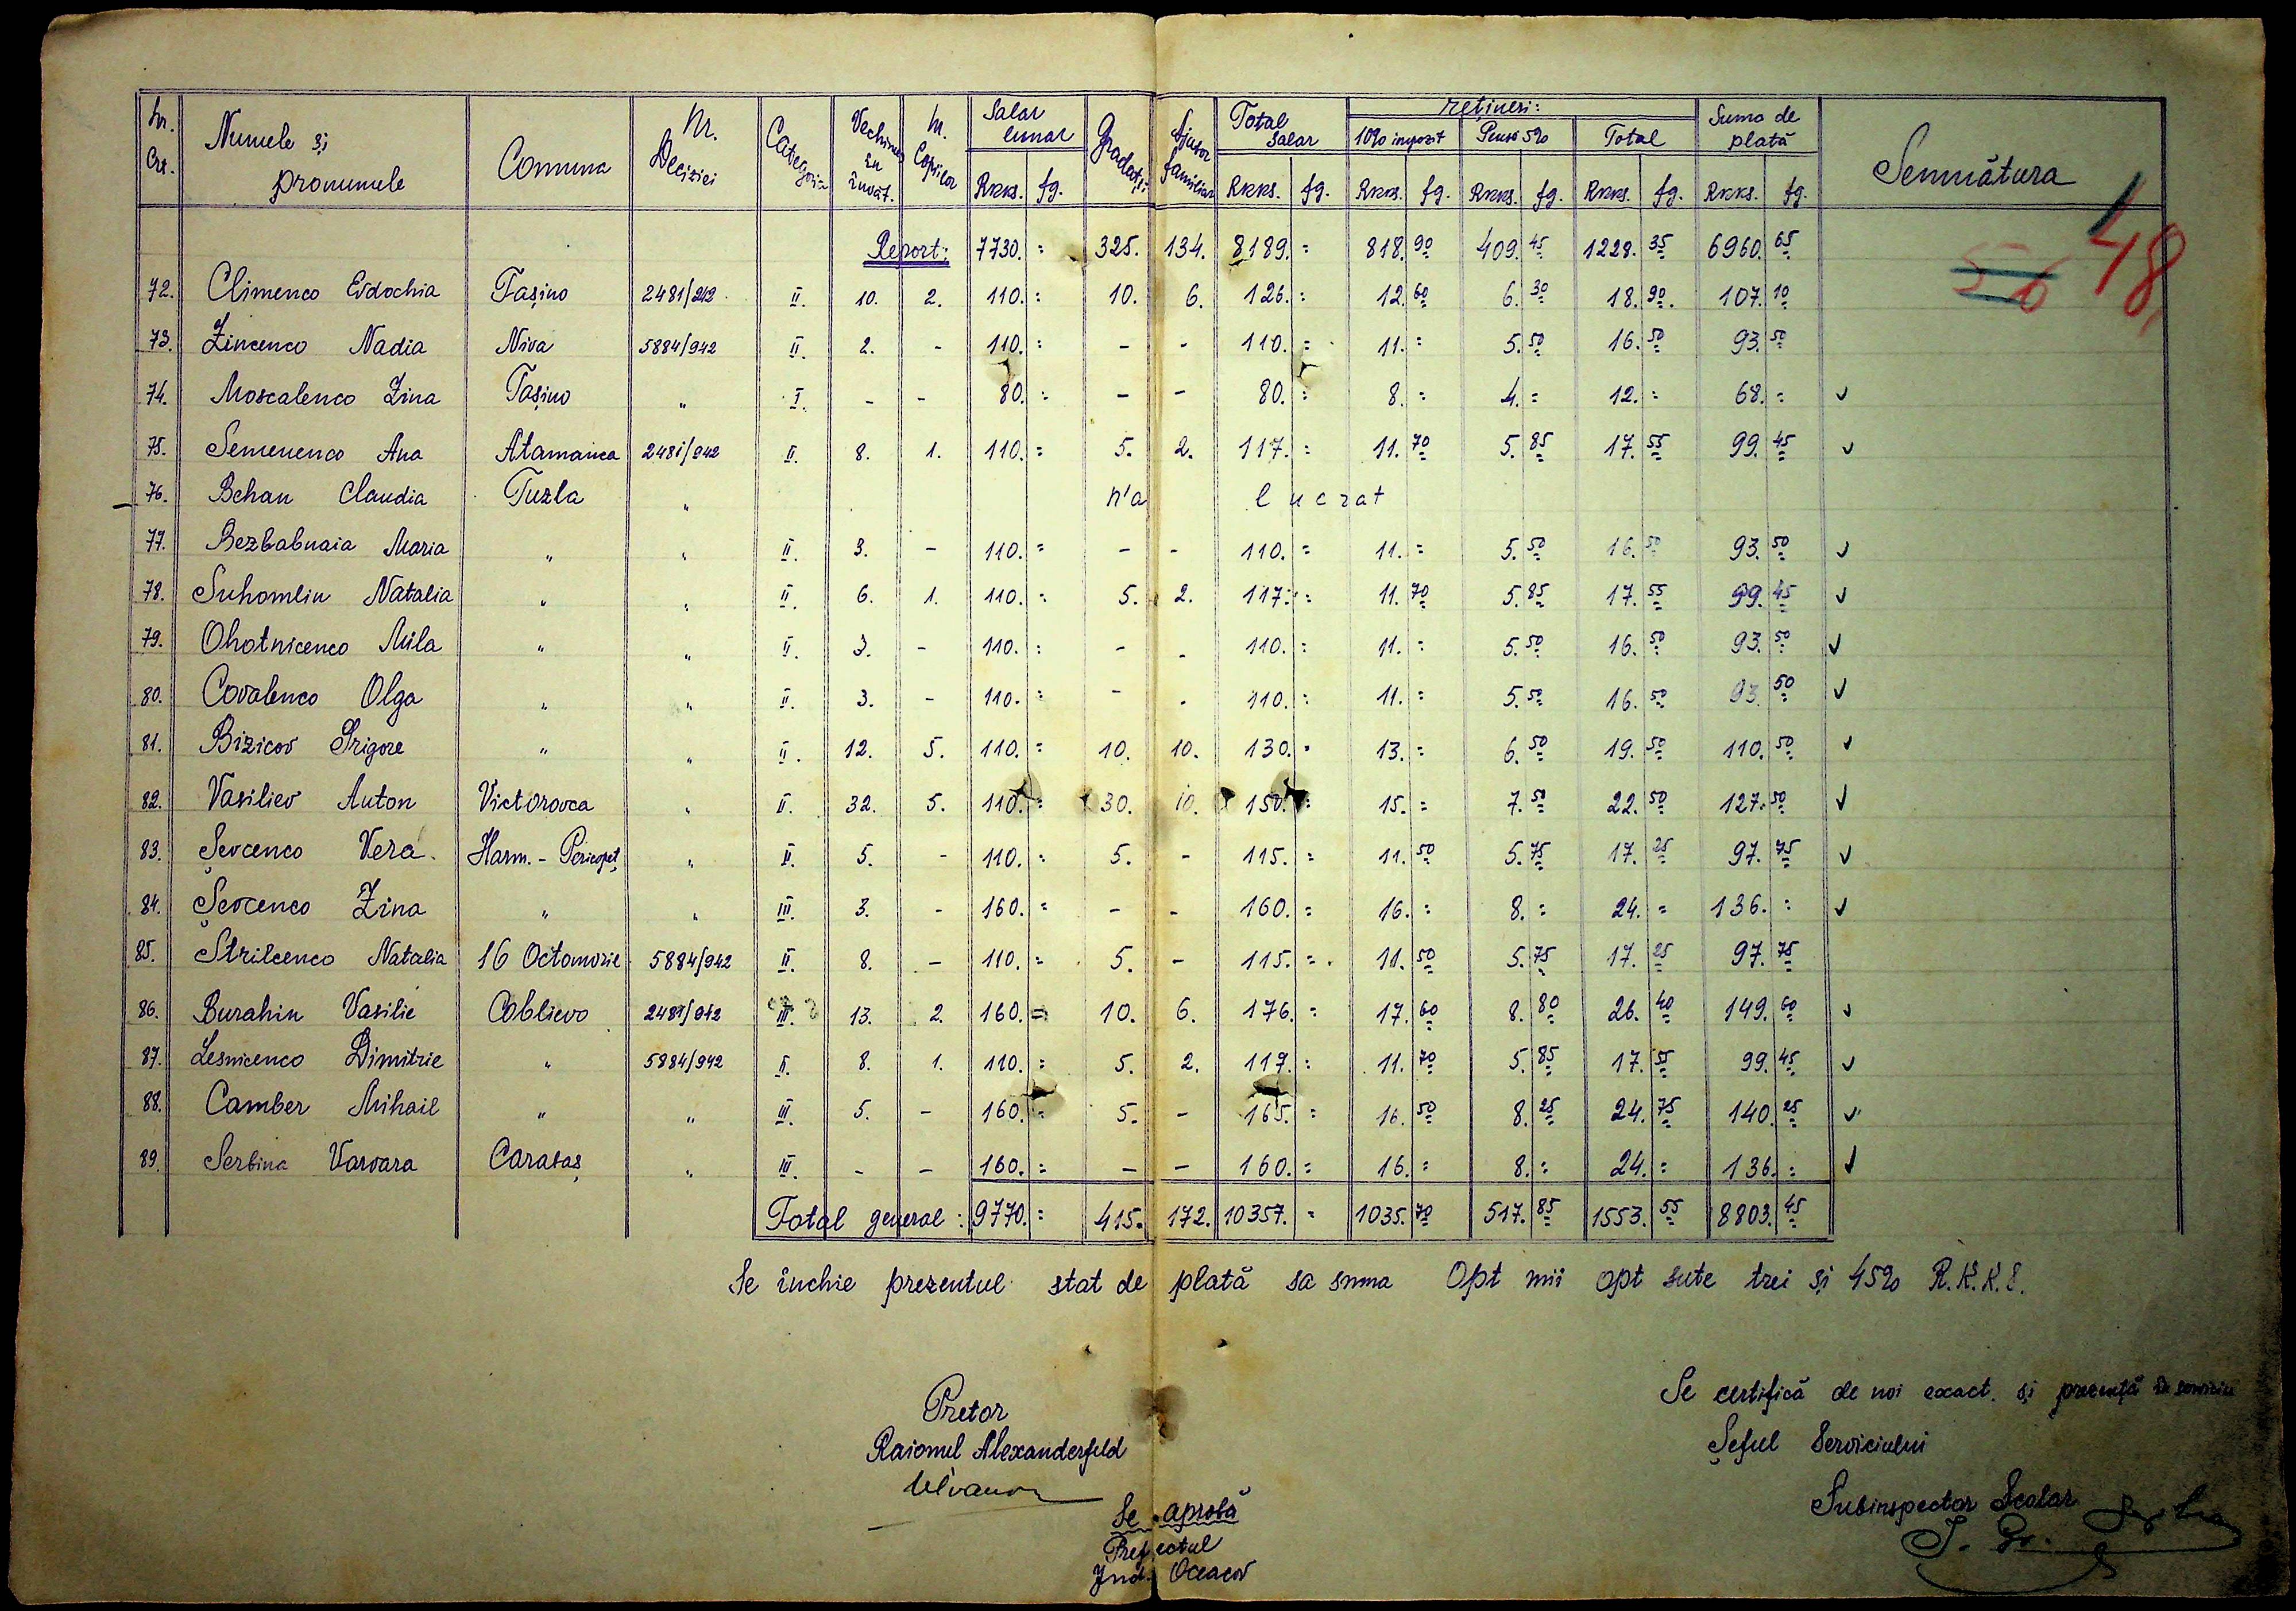 Nr. Crt. Numele și pronumele Comuna Nr. Deciziei Categoria Vechimea în învăț. Nr. Copiilor Salar lunar Gradații Ajutor familiar Total Salar rețineri: Suma de plată Semnătura
10% impozit Pensi 5% Total
Rkks. fg. Rkks. fg. Rkks. fg. Rkks. fg. Rkks. fg. Rkks. fg.
48
56
Report: 7730. = 325. 134. 8189. = 818. 90 409. 45 1228. 35 6960. 65
72. Climenco Evdochia Tașino 2481/942 II. 10. 2. 110. = 10. 6. 126. = 12. 60 6. 30 18. 90. 107. 10
73. Zincenco Nadia Niva 5884/942 II. 2. - 110. = - - 110. = 11. = 5. 50 16. 50 93. 50
74. Moscalenco Zina Tașino " I. - - 80. = - - 80. = 8. = 4. = 12. = 68. = ✓
75. Semenenco Ana Atamanca 2481/942 II. 8. 1. 110. = 5. 2. 117. = 11. 70 5. 85 17. 55 99. 45 ✓
76. Bchan Claudia Tuzla " n'a lucrat
77. Bezbabnaia Maria " " II. 3. - 110. = - - 110. = 11. = 5. 50 16. 50 93. 50 ✓
78. Suhomlin Natalia " " II. 6. 1. 110. = 5. 2. 117. = 11. 70 5. 85 17. 55 99. 45 ✓
79. Ohotnicenco Mila " " II. 3. - 110. = - - 110. = 11. = 5. 50 16. 50 93. 50 ✓
80. Covalenco Olga " " II. 3. - 110. = - - 110. = 11. = 5. 50 16. 50 93. 50 ✓
81. Bizicov Grigore " " II. 12. 5. 110. = 10. 10. 130. = 13. = 6. 50 19. 50 110. 50 ✓
82. Vasiliev Anton Victorovca " II. 32. 5. 110. = 30. 10. 150. = 15. = 7. 50 22. 50 127. 50 ✓
83. Șevcenco Vera. Harm. - Pericopeț " II. 5. - 110. = 5. - 115. = 11. 50 5. 75 17. 25 97. 75 ✓
84. Șevcenco Zina " " III. 3. - 160. = - - 160. = 16. = 8. = 24. = 136. = ✓
85. Strilcenco Natalia 16 Octomvrie 5884/942 II. 8. - 110. = 5. - 115. = 11. 50 5. 75 17. 25 97. 75
86. Burahin Vasilie Coblievo 2481/942 III. 13. 2. 160. = 10. 6. 176. = 17. 60 8. 80 26. 40 149. 60 ✓
87. Lesnicenco Dimitrie " 5884/942 II. 8. 1. 110. = 5. 2. 117. = 11. 70 5. 85 17. 55 99. 45 ✓
88. Camber Mihail " " III. 5. - 160. = 5. - 165. = 16. 50 8. 25 24. 75 140. 25 ✓
89. Serbina Varvara Carataș " III. - - 160. = - - 160. = 16. = 8. = 24. = 136. = ✓
Total general: 9770. = 415. 172. 10357. = 1035. 70 517. 85 1553. 55 8803. 45
Se închie prezentul stat de plată sa suma Opt mii opt sute trei și 45% R.K.K.S.
Se certifică de noi exact. și prezență în serviciu
Șeful Serviciului
Subinspector Școlar
Pretor
Raionul Alexanderfeld
Se aprobă
Prefectul
Jud. Oceacov